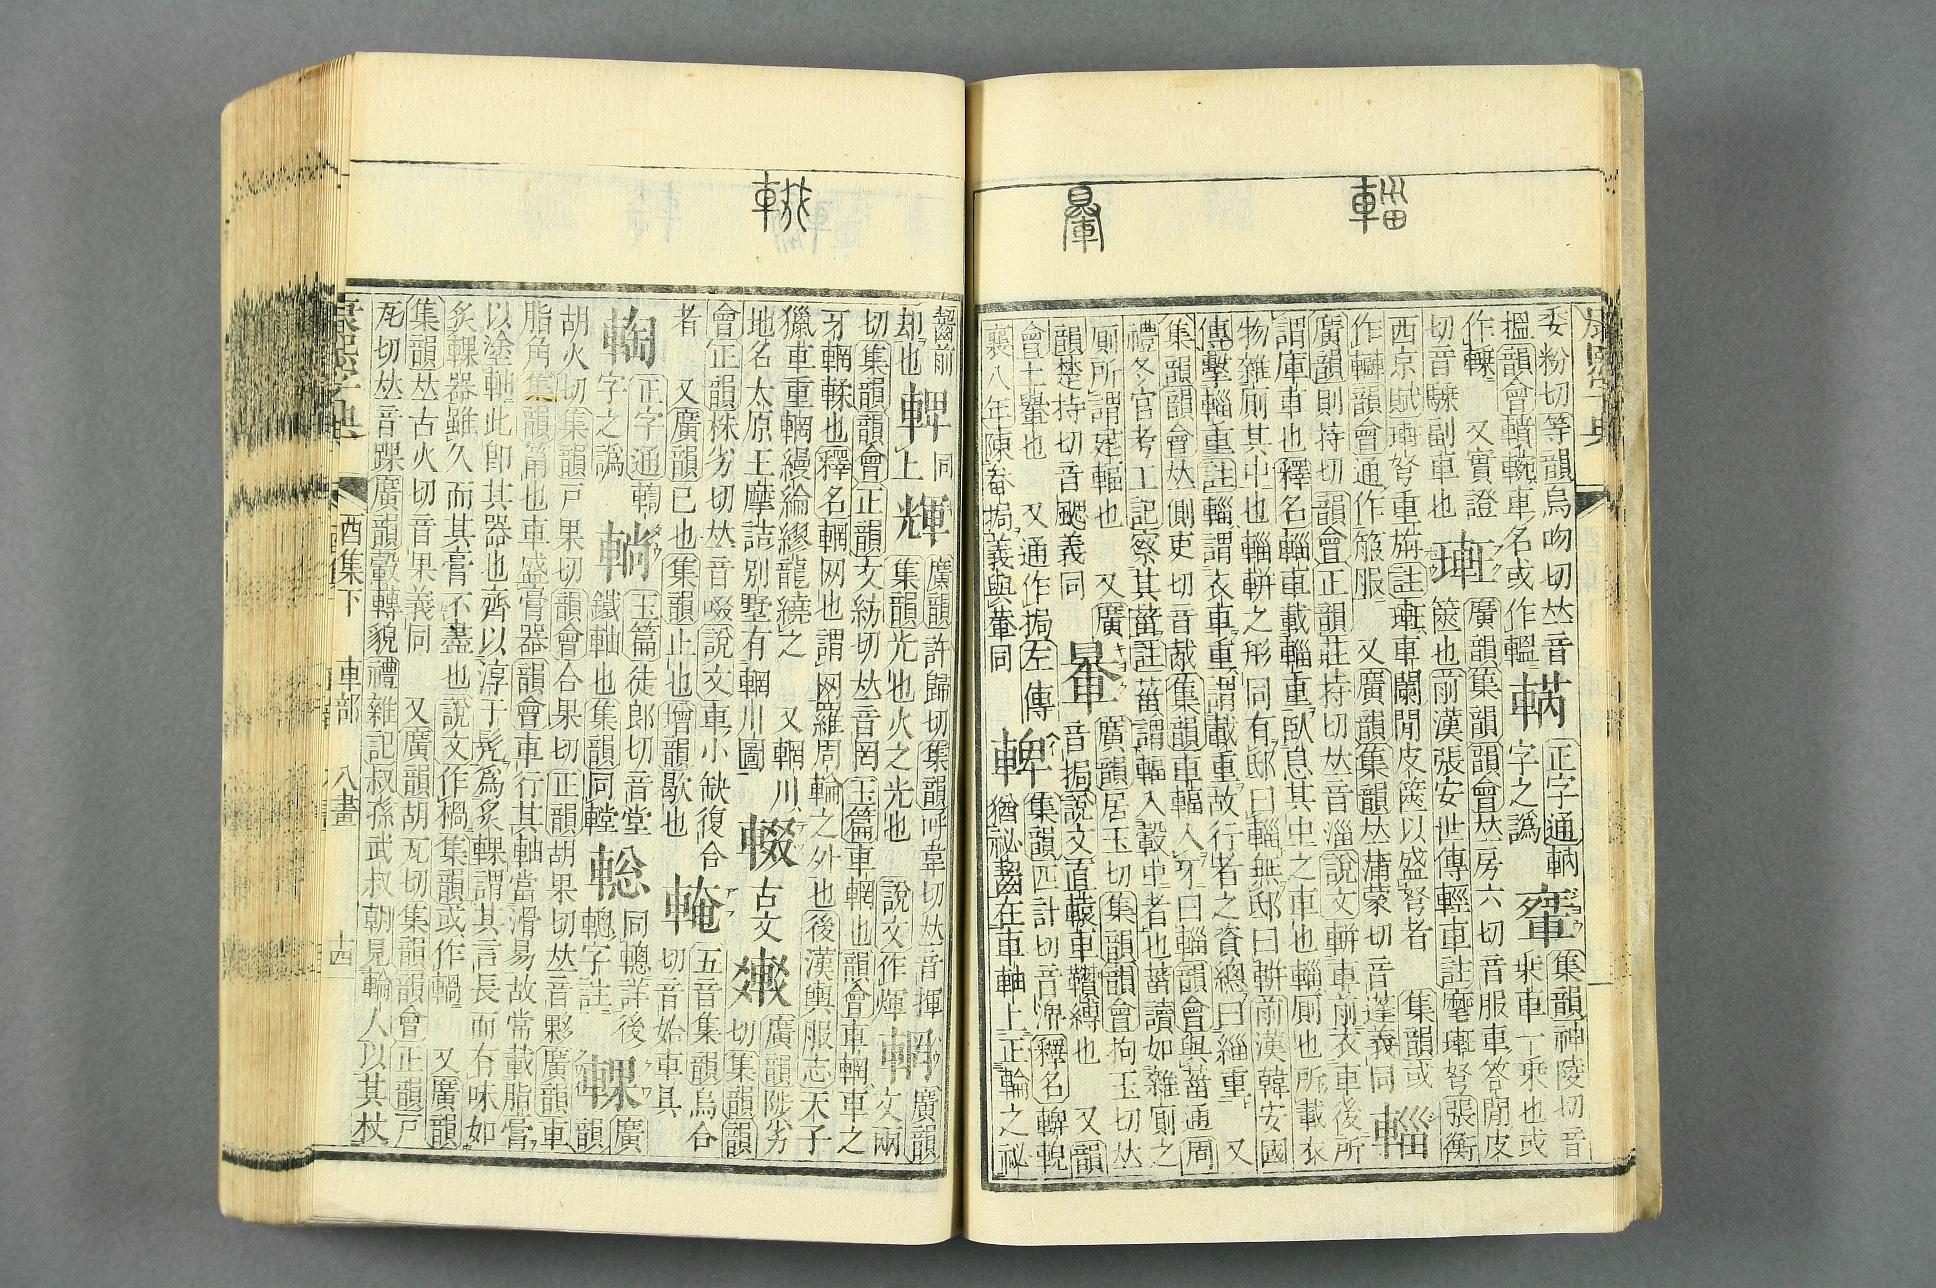 輜
輂
輟
康熙字典
委粉切等韻烏吻切𠀤音
搵韻會轀輬車名或作輼
正字通輌
字之譌
集韻神陵切音
椉車一乗也或
又實證
切音驂副車也
廣韻集韻韻會𠀤房六切音服車笭閒皮
篋也前漢張安世傳輕車註
弩張衡
西京賦琫弩重旃註琫車闌閒皮篋以盛弩者 集韻或
韻會通作箙服 又廣韻集韻𠀤蒲蒙切音蓬義同
輜
廣韻則持切韻會正韻莊持切𠀤音淄說文輧車前衣車後所
謂庫車也釋名輜車載輜重臥息其中之車也輜厠也所載衣
物雜厠其中也輜輧之形同有邸曰輜無邸曰輧前漢韓安國
傳擊輜重註輜謂衣車重謂載重故行者之資總曰輜重 又
集韻韻會𠀤側吏切音胾集韻車輻入牙曰輜韻會與菑通周
禮冬官考工記察其菑註菑謂輻入轂中者也菑讀如雜厠之
厠所謂建輻也 又廣
韻楚持切音颸義同
輂
廣韻居玉切集韻韻會拘玉切𠀤
音挶說文直轅車䡽縛也 又韻
會土轝也 又通作挶左傳
襄八年陳畚挶義與輂同
集韻匹計切音淠釋名
猶祕齧在車軸上正輪之祕
齧前
却也
同
上
輝
廣韻許歸切集韻呼韋切𠀤音揮
集韻光也火之光也 說文作煇
輞
廣韻
文兩
切集韻韻會正韻文紡切𠀤音罔玉篇車輞也韻會車輞車之
牙輞輮也釋名輞网也謂网羅周輪之外也後漢輿服志天子
獵車重輞縵綸繆龍繞之 又輞川
地名太原王摩詰別墅有輞川圖
輟
古文
廣韻陟劣
切集韻韻
會正韻株劣切𠀤音啜說文車小缺復合
者 又廣韻已也集韻止也增韻歇也
䡝
五音集韻烏合
切音姶車具
輷
正字通輷
字之譌
玉篇徒郎切音堂
鐵軸也集韻同䡯
同轗詳後
字註
輠
廣
韻
胡火切集韻戸果切韻會合果切正韻胡果切𠀤音夥廣韻車
脂角集韻筩也車盛膏器韻會車行其軸當滑易故常載脂膏
以塗軸此卽其器也齊以淳于髡爲炙輠謂其言長而有味如
炙輠器雖久而其膏不盡也說文作楇集韻或作𨍋 又廣韻
集韻𠀤古火切音果義同 又廣韻胡瓦切集韻韻會正韻戸
瓦切𠀤音踝廣韻轂轉貌禮雜記叔孫武叔朝見輪人以其杖
康熙字典
酉集下 車部 八畫